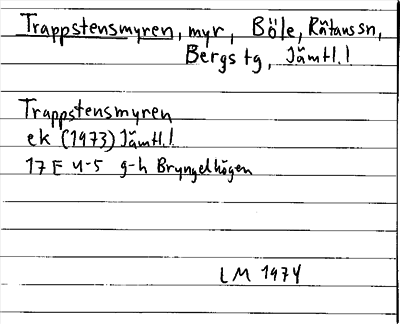 Trappstensmyren, myr, Böle, Rätanssn,
Bergs tg, Jämtl.l
Trappstensmyren
ek (1973) Jämtl.l
17 E 4-5 g-h Bryngelhögen
LM 1974